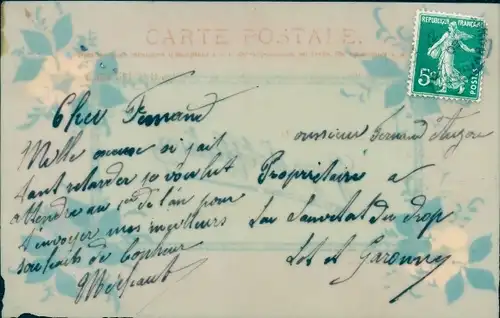 CARTE POSTALE
REPUBLIQUE FRANÇAISE
5c
POSTES
Cher Fernand
Mille excuse si j'ait
tant retarder je voulut
attendre au 1er de l'an pour
t'envoyer mes meilleurs
souhaits de bonheur
monsieur Fernand
Propriétaire a
La Sauvetat du Drop
Lot et Garonne